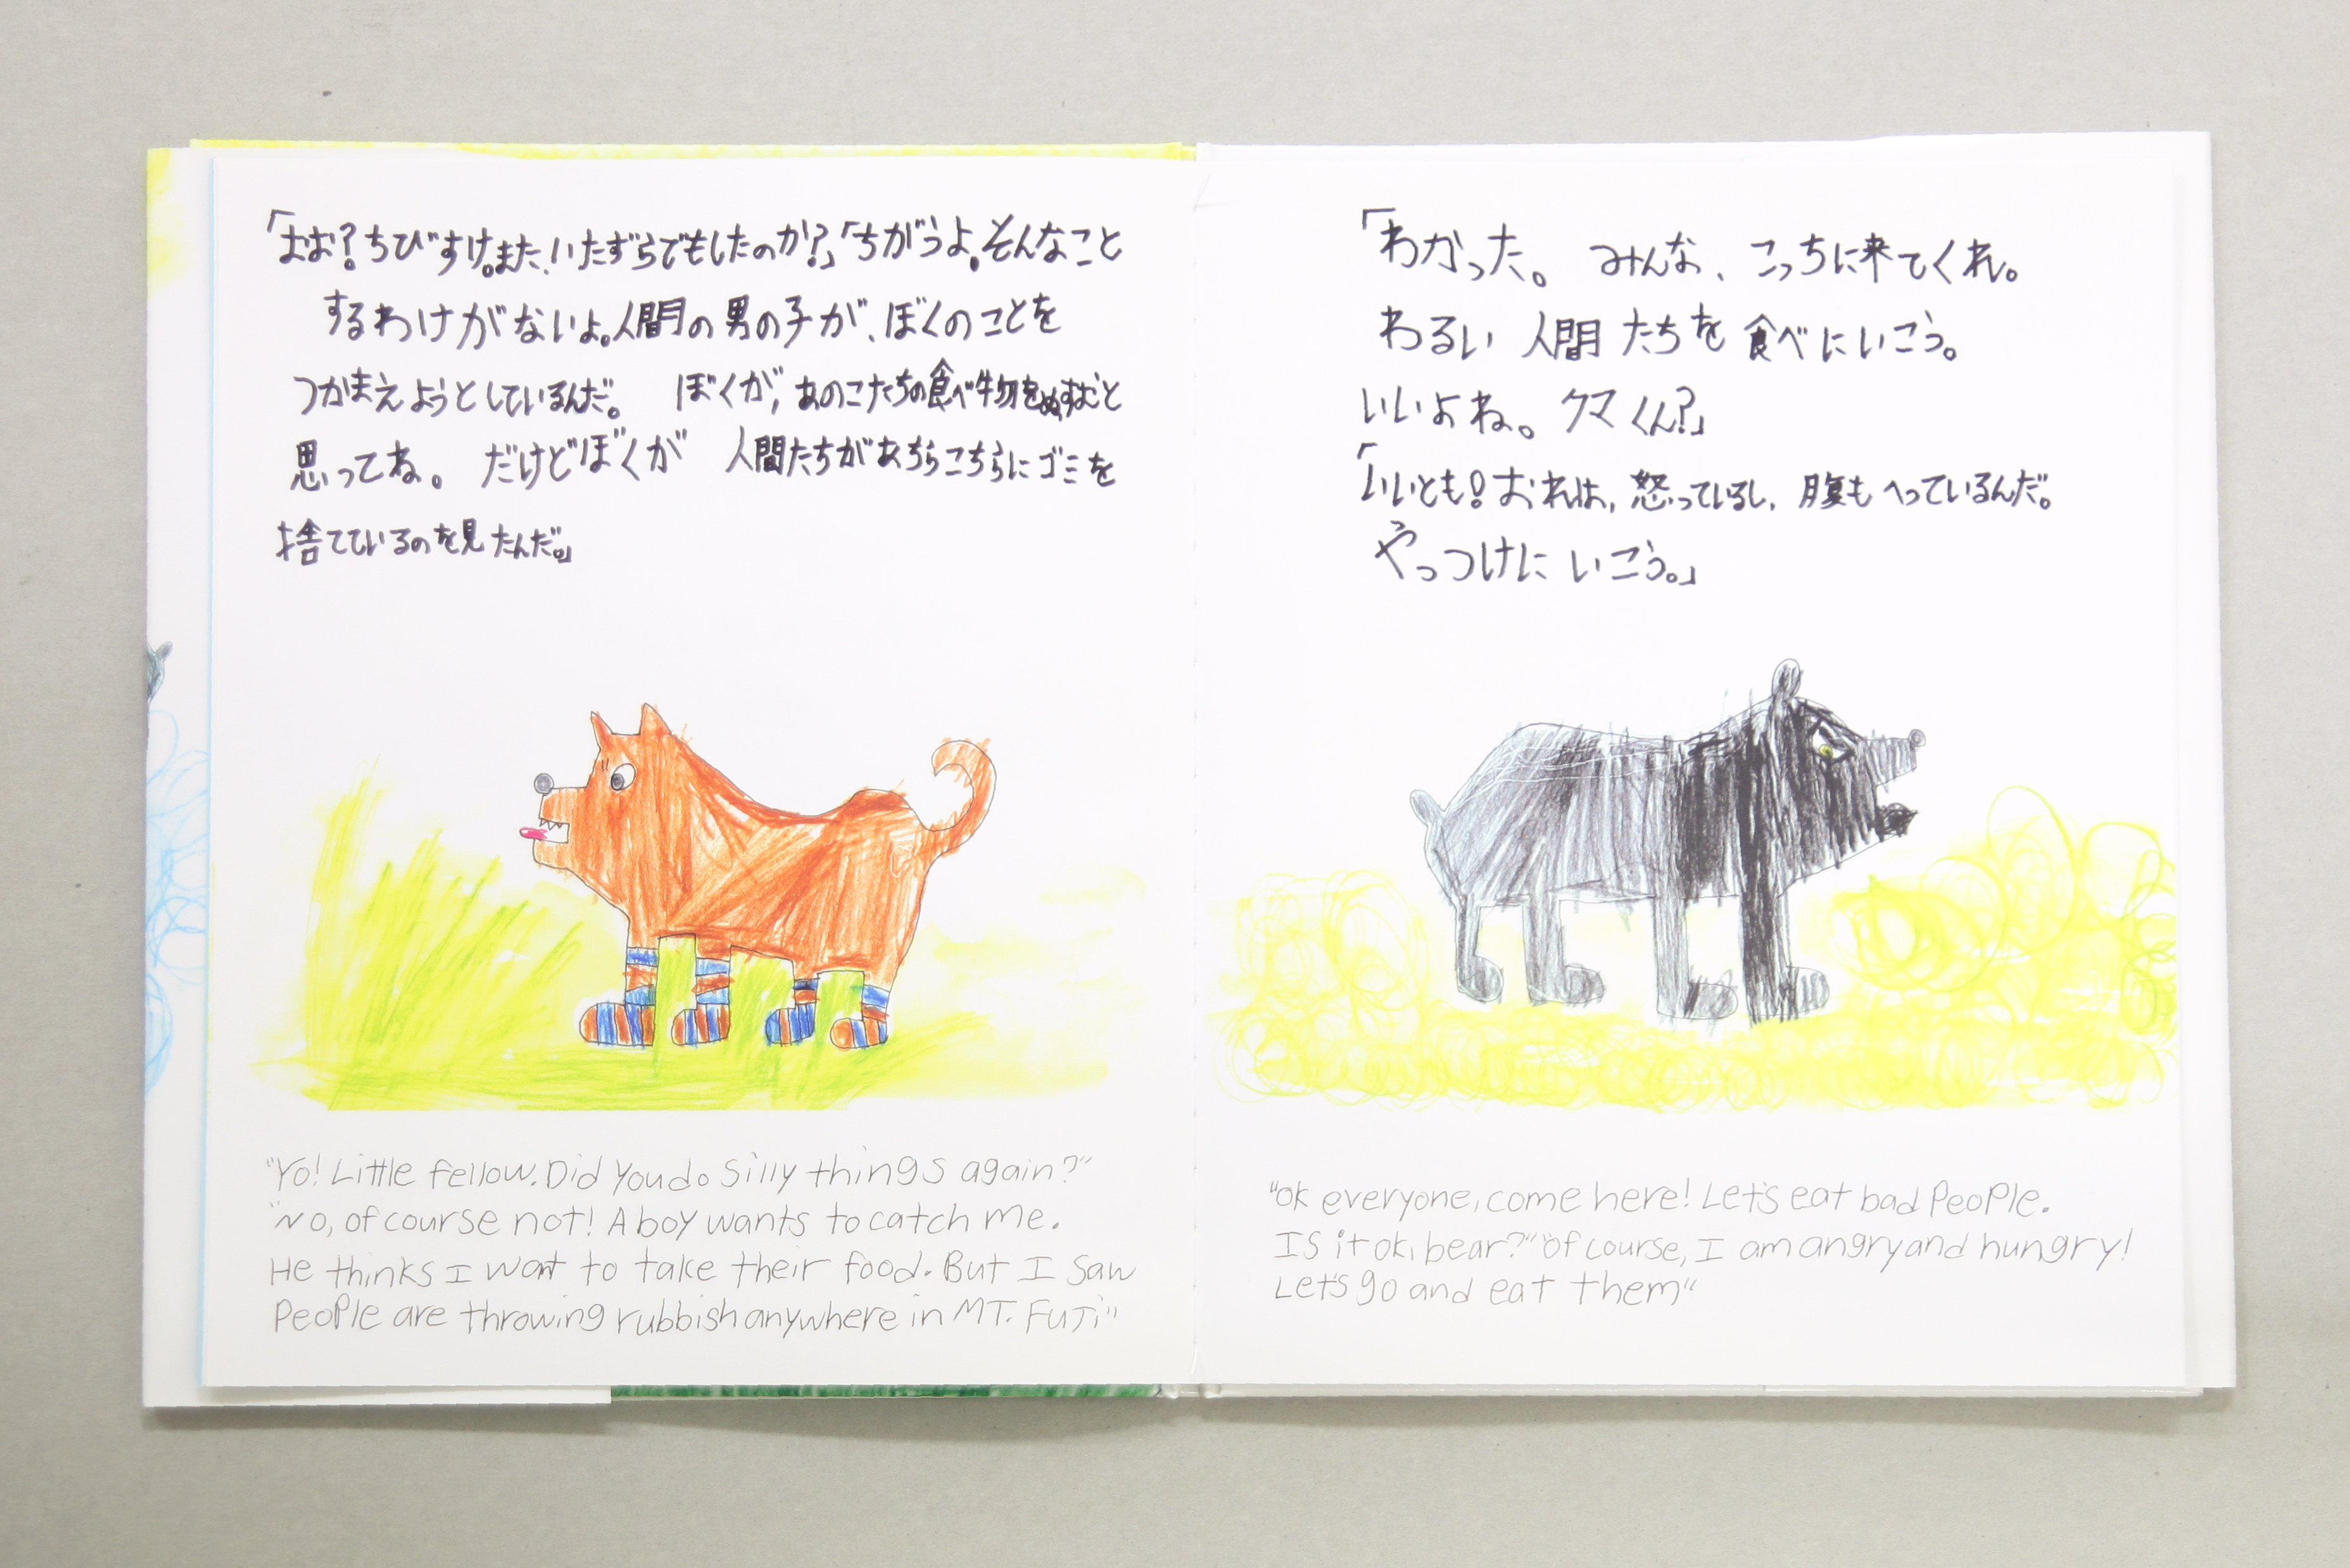 「よお?ちびすけ。また、いたずらでもしたのか?」「ちがうよ。そんなこと
するわけがないよ。人間の男の子が、ぼくのことを
つかまえようとしているんだ。 ぼくが、あのこたちの食べ物をぬすむと
思ってね。 だけどぼくが 人間たちがあちらこちらにゴミを
捨てているのを見たんだ。」
"Yo! Little fellow. Did you do silly things again?"
"No, of course not! A boy wants to catch me.
He thinks I want to take their food. But I saw
People are throwing rubbish anywhere in MT. FUJi"
「わかった。 みんな、こっちに来てくれ。
わるい 人間たちを食べにいこう。
いいよね。クマくん?」
「いいとも!おれは、怒っているし、腹もへっているんだ。
やっつけにいこう。」
"Ok everyone, come here! Let's eat bad People.
IS it ok, bear?" "Of course, I am angry and hungry!
Let's go and eat them"